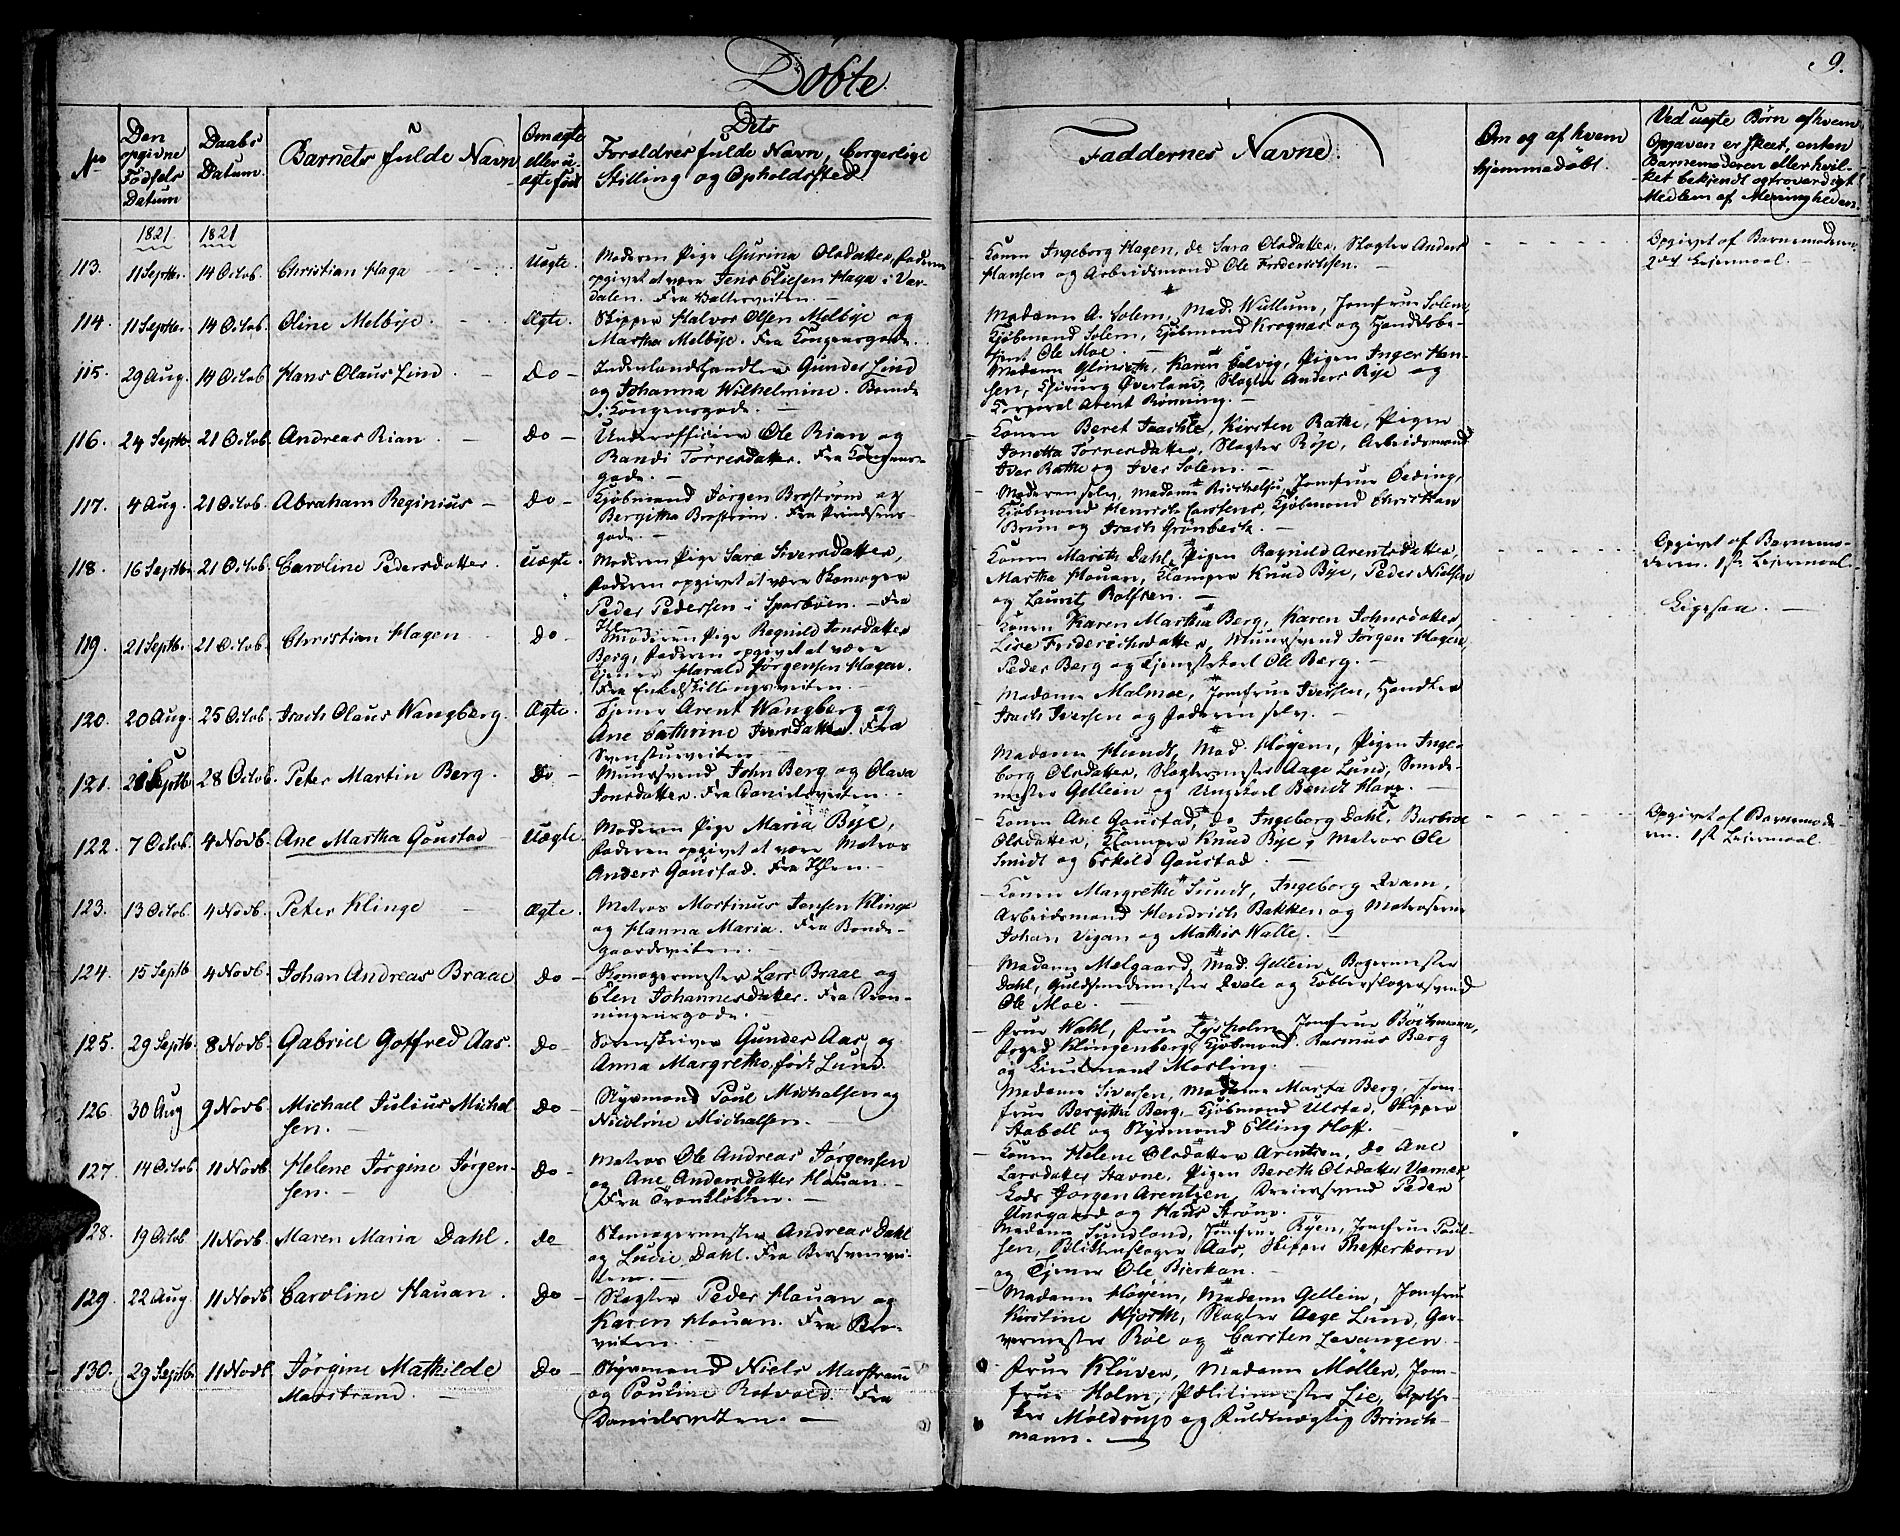 Døbte.
9.
No
Den opgivne Fødsels Datum
Daabs Datum.
Barnets fulde Navn
Om ægte eller uægte født
Dets Forældres fulde Navn, borgerlige Stilling og Opholdssted.
Faddernes Navne.
Om og af hvem hjemmedøbt.
Ved uægte Børn af hvem Opgaven er skeet, enten Barnemoderen eller hvilket bekjendt og troværdigt Medlem af Menigheden.
1821. 1821
113. 11 Septbr. 14 Octob. Christian Haga Uægte.
Moderen Pige Gurina Olsdatter, Faderen
opgivet at være Jens Eliesen Haga i Vær-
dalen. Fra
Konen Ingeborg Hagen, do Sara Olsdatter, Slagter Anders
Hansen og Arbeidsmand Ole Frederichsen. —
Opgivet af Barnemoderen
2det Leiermaal.
114. 11 Septbr. 14 Octob. Oline Melbye. Ægte.
Skipper Halvor Olsen Melbye og
Martha Melbye. Fra Kongensgade.
Madame A. Solem, Mad. Willum, Jomfrue Solem,
Kjøbmand Solem, Kjøbmand Krognæs og Handelsbe-
tjent Ole Moe.
115. 29 Aug. 14 Octob. Hans Olaus Lind Do —
Inderlandshandler Gunder Lind
og Johanna Wilhelmine. Boende
i Kongensgade. —
Madame Karen Pigen Inger Han-
sen, Chirurg Øverland, Slagter Anders Rye og
Corporal Arent Rønning. —
116. 24 Septb. 21 Octob. Andreas Rian Do —
Underofficier Ole Rian og
Randi Tørresdatter. Fra Kongens-
gade. —
Konen Beret Kirsten Rathe, Pigen
Jonetta Torresdatter, Slagter Røye, Arbeidsmand
Iver Rathe og Iver Solem. —
117. 4 Aug. 21 Octob. Abraham Reginius — Do —
Kjøbmand Jørgen Brostrøm og
Bergitha Brostrøm. Fra Prindsens-
gade. —
Moderen selv, Madame Jomfrue Oeding,
Kjøbmand Henrich Carstens, Kjøbmand Christian
Brun og Isach Grønbech. —
118. 16 Septb. 21 Octob. Caroline Pedersdatter. Uægte.
Moderen Pige Sara Siversdatter,
Faderen opgivet at være Skomager
Peder Pedersen i Sparboen. — Fra
Ihlen. —
Konen Marith Dahl, Pigen Ragnild Arentsdatter,
Martha Houan, Klamper Knud Bye, Peder Nielsen
og Laurits Rolfsen. —
Opgivet af Barnemo-
deren. 1st Leiermaal.
119. 21 Septb. 21 Octob. Christian Hagen Do
Moderen Pige Regnild Jonsdatter
Berg, Faderen opgivet at være
Tjener Harald Jørgensen Hagen.
Fra Enkeltskillingsveiten. —
Konen Karen Martha Berg, Karen Johnsdatter,
Lise Friderichsdatter, Muursvend Jørgen Hagen,
Peder Berg og Tjenestekarl Ole Berg. —
Ligesaa. —
120. 20 Aug. 25 Octob. Isach Olaus Wangberg. Ægte.
Tjener Arent Wangberg og
Ane Cathrine Iversdatter. Fra
—
Madame Malmoe, Jomfrue Iversen, Handler
Isach Iversen og Faderen selv. —
121. 28 Septb. 28 Octob. Peter Martin Berg. Do —
Muursvend John Berg og Olava
Jonsdatter. Fra Danielsveiten. —
Madame Hundt, Mad. Høyem, Pigen Inge-
borg Olsdatter, Slagtermester Aage Lund, Smede-
mester Gellein og Ungkarl Bendt
122. 7 Octob. 4 Novb. Ane Martha Goustad Uægte.
Moderen Pige Maria Bye,
Faderen opgivet at være Matros
Anders Goustad. Fra Ihlen. —
Konen Ane Goustad, do Ingeborg Dahl, Barbroe
Olsdatter, Klamper Knud Bye, Matros Ole
Smidt og Eskild Goustad. —
Opgivet af Barnemode-
ren. 1st Leiermaal.
123. 13 Octob. 4 Novb. Peter Klinge — Ægte.
Matros Martinus Jensen Klinge
og Hanna Maria. Fra Bonde-
gaardsveiten. —
Konen Margrethe Sundt, Ingeborg Qvam,
Arbeidsmand Hendrich Bakken og Matroserne
Johan Vigan og Mathis Walle.
124. 15 Septb 4 Novb. Johan Andreas Braae Do —
Skomagermester Lars Braae og
Elen Johannesdatter. Fra Dron-
ningensgade. —
Madame Melgaard, Mad. Gellein, Bagermester
Dahl, Guldsmedemester Qvale og Kobberslagersvend
Ole Moe. —
125. 29 Septb. 8 Novb. Gabriel Gotfred Aas. Do —
Sorenskriver Gunder Aas og
Anna Margrethe, født Lund.
Frue Wahl, Frue Lysholm, Jomfrue
Foged Klingenberg, Kjøbmand Rasmus Berg
og Lieutenant Møsling. —
126. 30 Aug 9 Novb. Michael Julius Michel Do —
sen. —
Styrmand Poul Michelsen og
Nicoline Michelsen. —
Madame Siversen, Madame Marta Berg, Jom-
frue Bergitha Berg, Kjøbmand Ulstad, Skipper
Stabell og Styrmand Elling Hoff. —
127. 14 Octob. 11 Novb. Helene Jørgine Jørgen- Do —
sen. —
Matros Ole Andreas Jørgensen
og Ane Andersdatter Hauan. —
Fra Tronkløkken. —
Konen Helene Olsdatter Arentzen, do Ane
Larsdatter Stavne, Pigen Bereth Olsdatter
Jørgen Arentzen, Dreiersvend Peder
og Hans Strøm. —
128. 19 Octob 11 Novb. Maren Maria Dahl. Do
Skomagermester Andreas Dahl
og Lucie Dahl. Fra
—
Madame Sundland, Jomfrue Ryen, Jomfrue Poul-
sen, Blikkenslager Aas, Skipper Thefferkorn
og Tjener Ole Bierkan. —
129. 22 Aug. 11 Novb. Caroline Hauan. Do —
Slagter Peder Hauan og
Karen Houan. Fra
—
Madame Høyem, Madame Gellein, Jomfrue
Kirstine Hjorth, Slagter Aage Lund, Gar-
vermester Røe og Carsten Levangen. —
130. 29 Septb. 11 Novb. Jørgine Mathilde Do —
Marstrand. —
Styrmand Niels Marstrand
og Pouline Rotvold. Fra
Danielsveiten. —
Frue Klüver, Madame Møller, Jom-
frue Holm, Politiemester Lie, Apothe-
ker Møldrup og Fuldmægtig Brinch-
mann. —